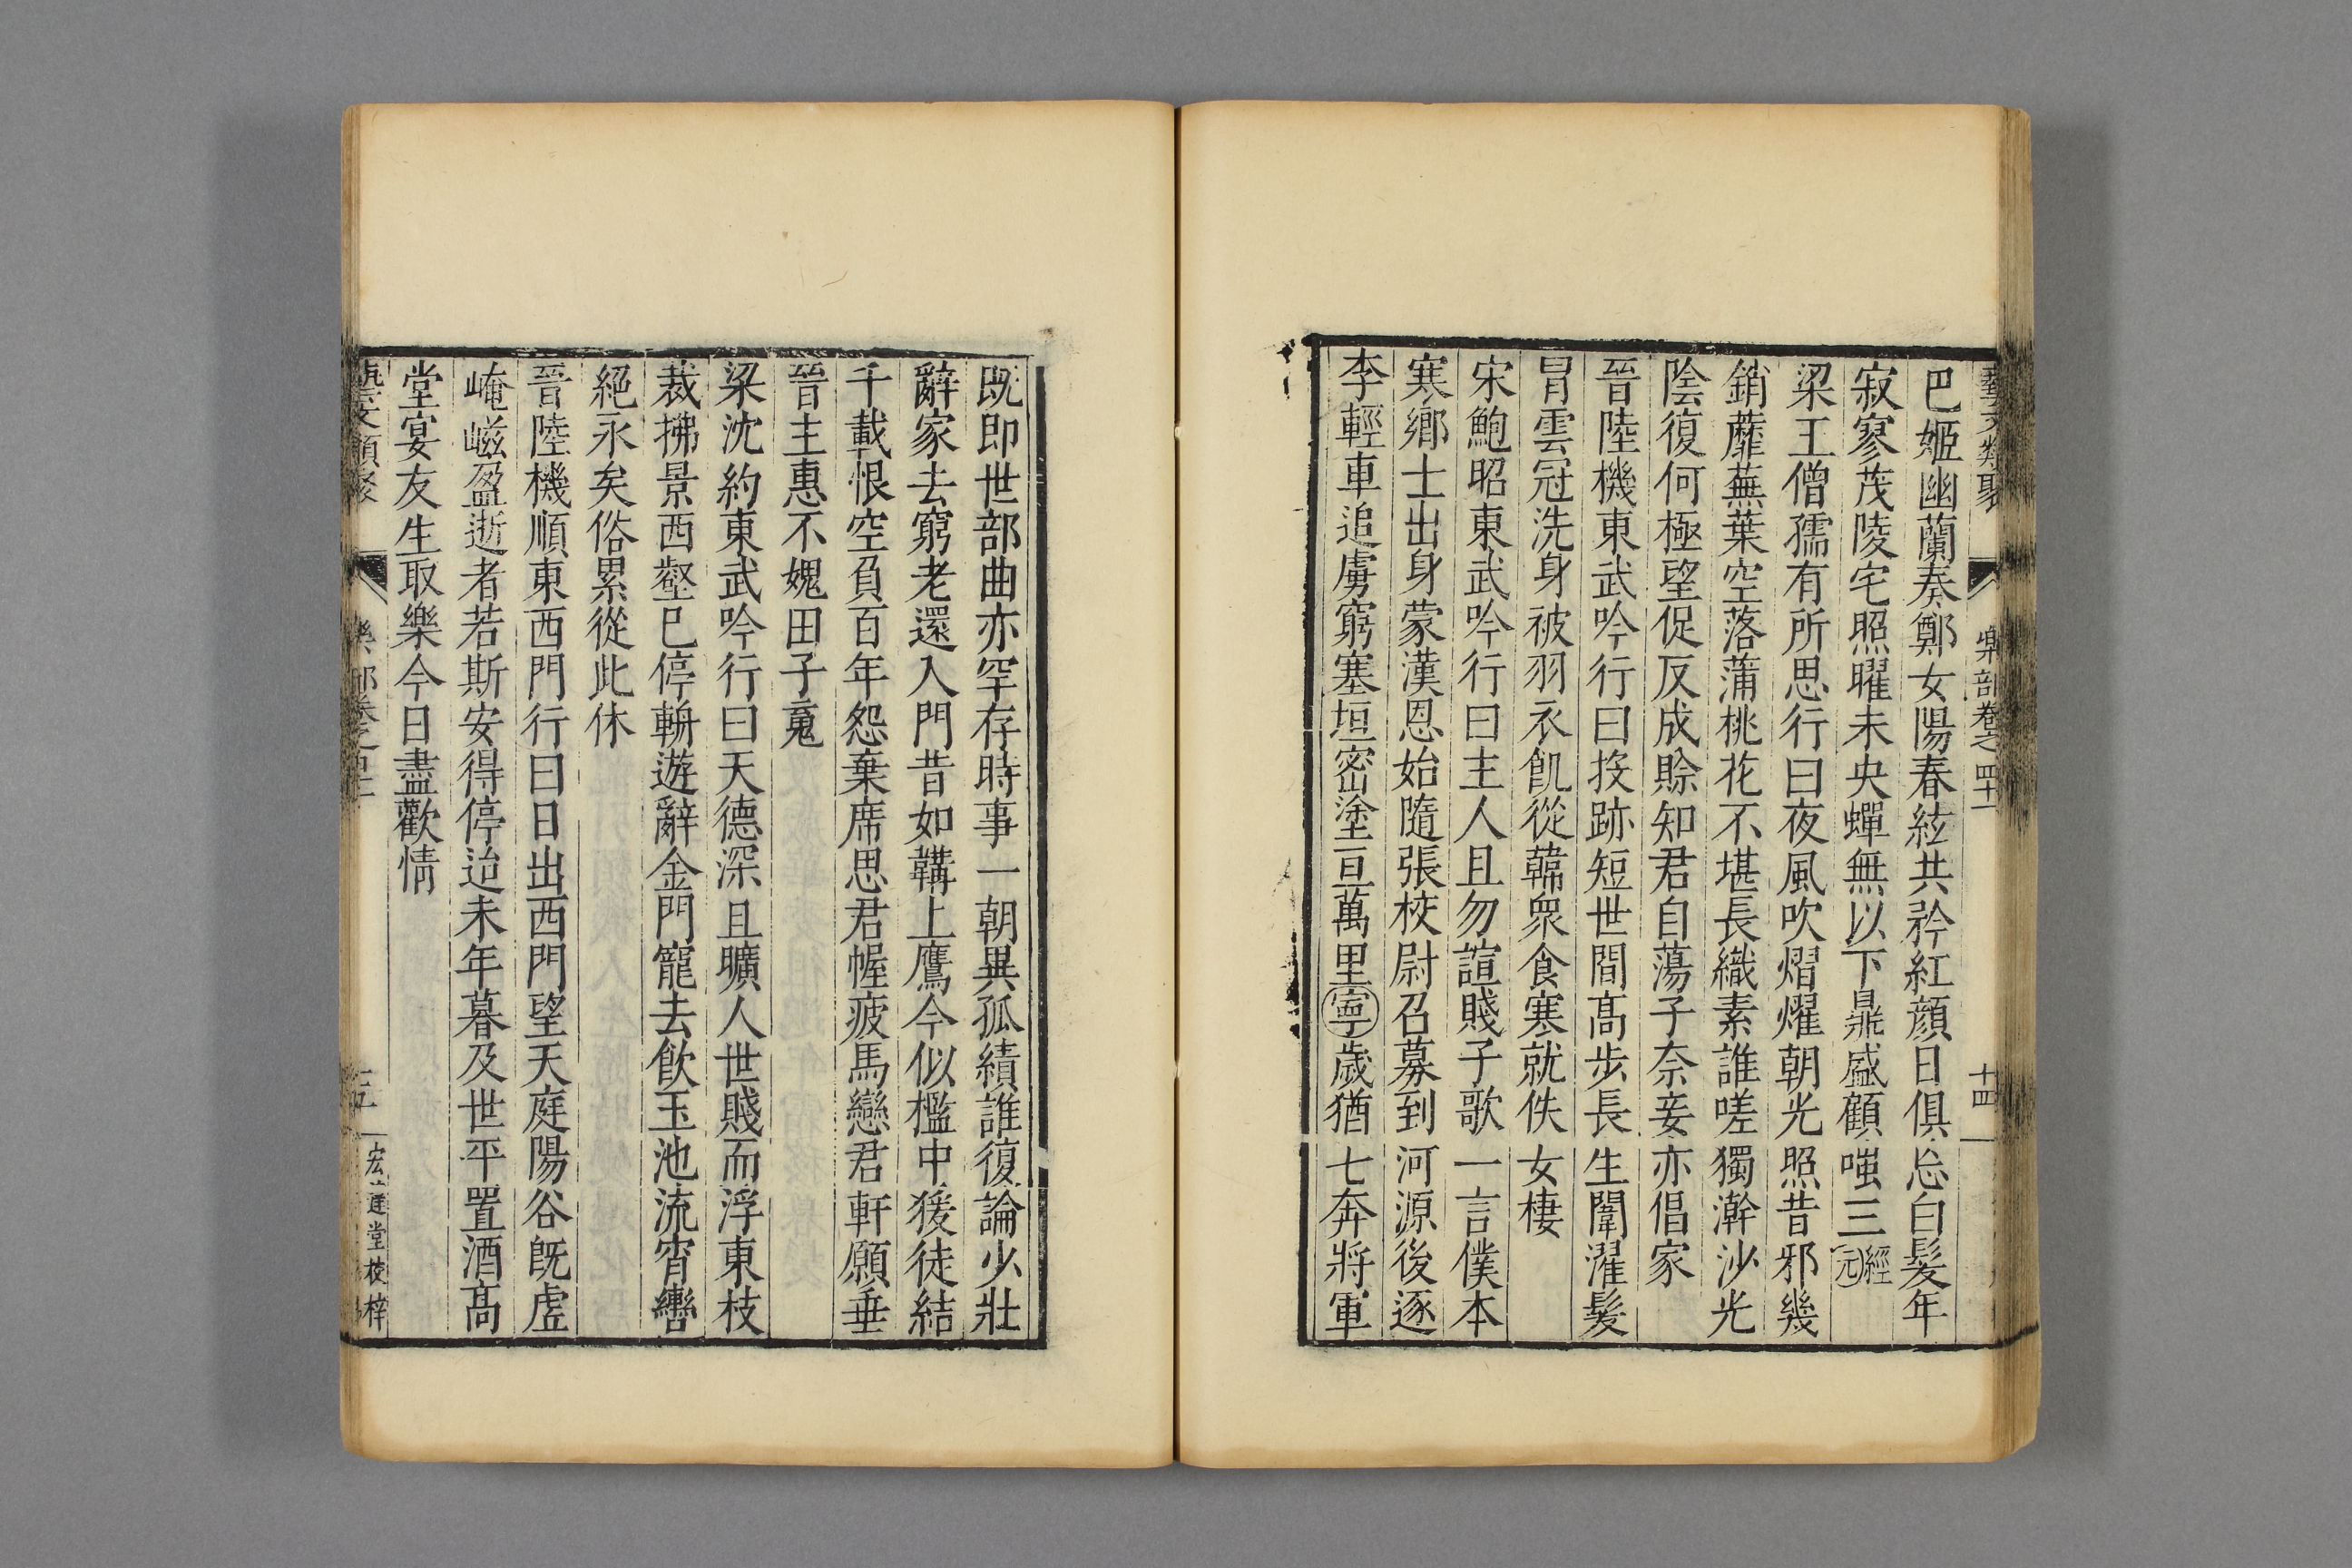 藝文類聚 樂部卷之四十一 十四
巴姬幽蘭奏鄭女陽春絃共矜紅顔日俱忘白髮年
寂寥茂陵宅照曜未央蟬無以下鼎盛顧嗤三經元
梁王僧孺有所思行曰夜風吹熠燿朝光照昔邪幾
銷蘼蕪葉空落蒲桃花不堪長織素誰嗟獨澣沙光
陰復何極望促反成賒知君自蕩子奈妾亦倡家
晉陸機東武吟行曰投跡短世間髙步長生闈濯髮
冐雲冠洗身被羽衣飢從韓衆食寒就佚女棲
宋鮑昭東武吟行曰主人且勿諠賤子歌一言僕本
寒鄉士出身蒙漢恩始隨張校尉召募到河源後逐
李輕車追虜窮塞垣密塗亘萬里寧歲猶七奔將軍
既即世部曲亦罕存時事一朝異孤績誰復論少壯
辭家去窮老還入門昔如鞲上鷹今似檻中猨徒結
千載恨空負百年怨棄席思君幄疲馬戀君軒願垂
晉主惠不媿田子䰟
梁沈約東武吟行曰天德深且曠人世賤而浮東枝
裁拂景西壑巳停輈遊辭金門寵去飲玉池流宵轡
絕永矣俗累從此休
晉陸機順東西門行曰日出西門望天庭陽谷既虗
崦嵫盈逝者若斯安得停迨未年暮及世平置酒髙
堂宴友生取樂今日盡歡情
藝文類聚 樂部卷之四十一 十五 宏達堂校梓